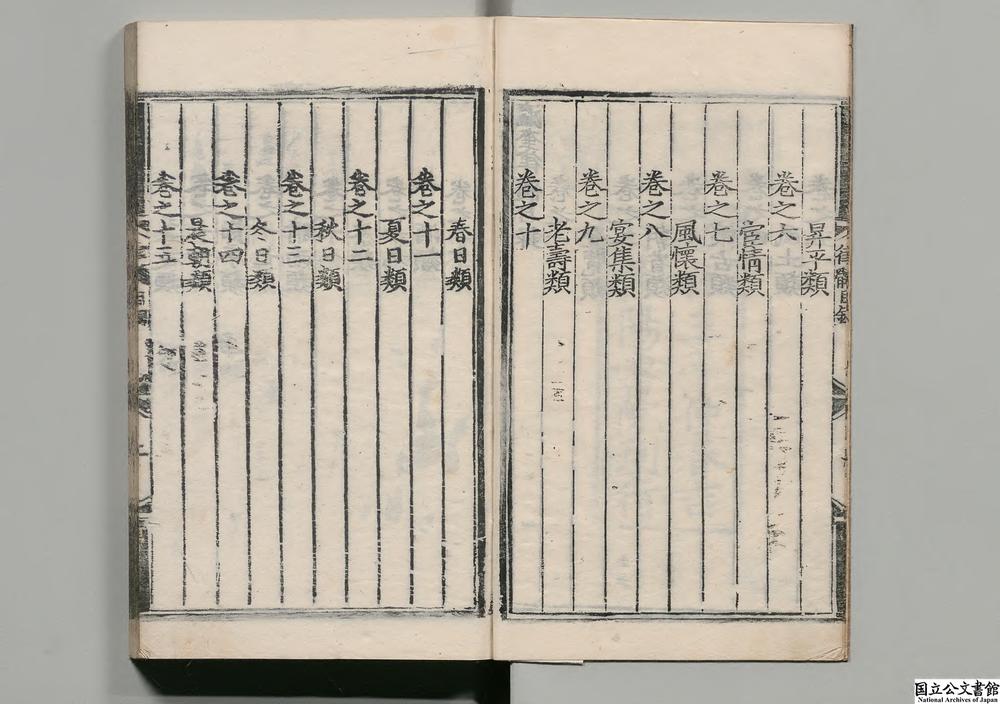 昇平類
卷之六
宦情類
卷之七
風懷類
卷之八
宴集類
卷之九
老壽類
卷之十
春日類
卷之十一
夏日類
卷之十二
秋日類
卷之十三
冬日類
卷之十四
晨朝類
卷之十五
国立公文書館
National Archives of Japan